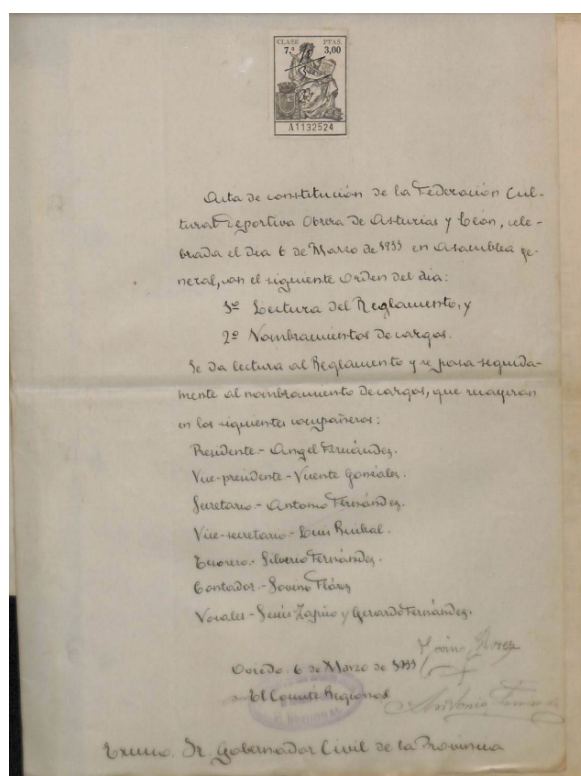 CLASE 7.ª PTAS. 3,00
A1132524
Acta de constitución de la Federación Cul-
tural Deportiva Obrera de Asturias y León, cele-
brada el dia 6 de Marzo de 1933 en Asamblea ge-
neral, con el siguiente Orden del dia:
1º Lectura del Reglamento, y
2º Nombramientos de cargos.
Se da lectura al Reglamento y se pasa seguida-
mente al nombramiento de cargos, que recayeron
en los siguientes compañeros:
Presidente.- Angel Fernández.
Vice-presidente - Vicente González.
Secretario.- Antonio Fernández.
Vice-secretario.- Luis
Tesorero.- Silverio Fernández.
Contador.- Sovino Flórez
Vocales - Jesús Zapico y Gerardo Fernández.
Oviedo. 6 de Marzo de 1933
El Comité Regional
Antonio
Exmmo. Sr. Gobernador Civil de la Provincia